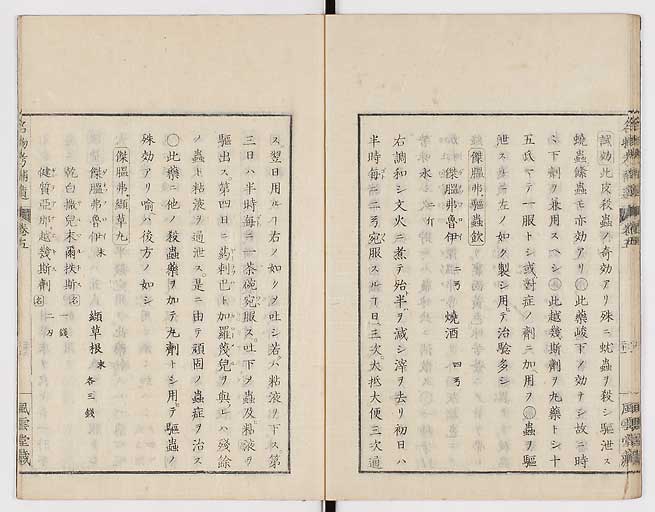 試効此皮殺蟲ノ奇効アリ殊ニ蚘蟲ヲ殺シ駆泄ス
蟯蟲絛蟲モ亦効アリ此藥峻下ノ効ナシ故ニ時
ニ下剤ヲ兼用スヘシ此越幾斯劑ヲ丸藥トシ十
五氏マテ一服トシ或對症ノ劑ニ加用ヲ蟲ヲ駆
泄スルニ左ノ如ク製シ用テ治驗多シ
傑腽弗駆蟲飲
傑腽弗魯伊 二 燒酒 四
水 二
右調和シ文火ニ煮テ殆半ヲ減シ滓ヲ去リ初日ハ
半時毎ニ二 宛服スルヿ日三次大抵大便三次通
ス翌日用ルヿ右ノ如クシ吐シ若ハ粘液ヲ下ス第
三日ハ半時毎ニ一茶碗宛服ス吐下ノ蟲及粘液ヲ
駆出ス第四日ニ葯刺巴ト加羅篾兒ヲ與レハ殘餘
ノ蟲ト粘液ヲ過泄ス是ニ由テ頑固ノ蟲症ヲ治ス
〇此藥ニ他ノ殺蟲藥ヲ加テ丸劑トシ用テ駆蟲ノ
殊効アリ喩ハ後方ノ如シ
傑腽弗纈草丸
傑腽弗魯伊末 纈草根末 各三錢
乾白撒兒末爾扶斯名 一錢
健質亞那越幾斯劑名 二
名物考補遺 卷五
風雲堂藏